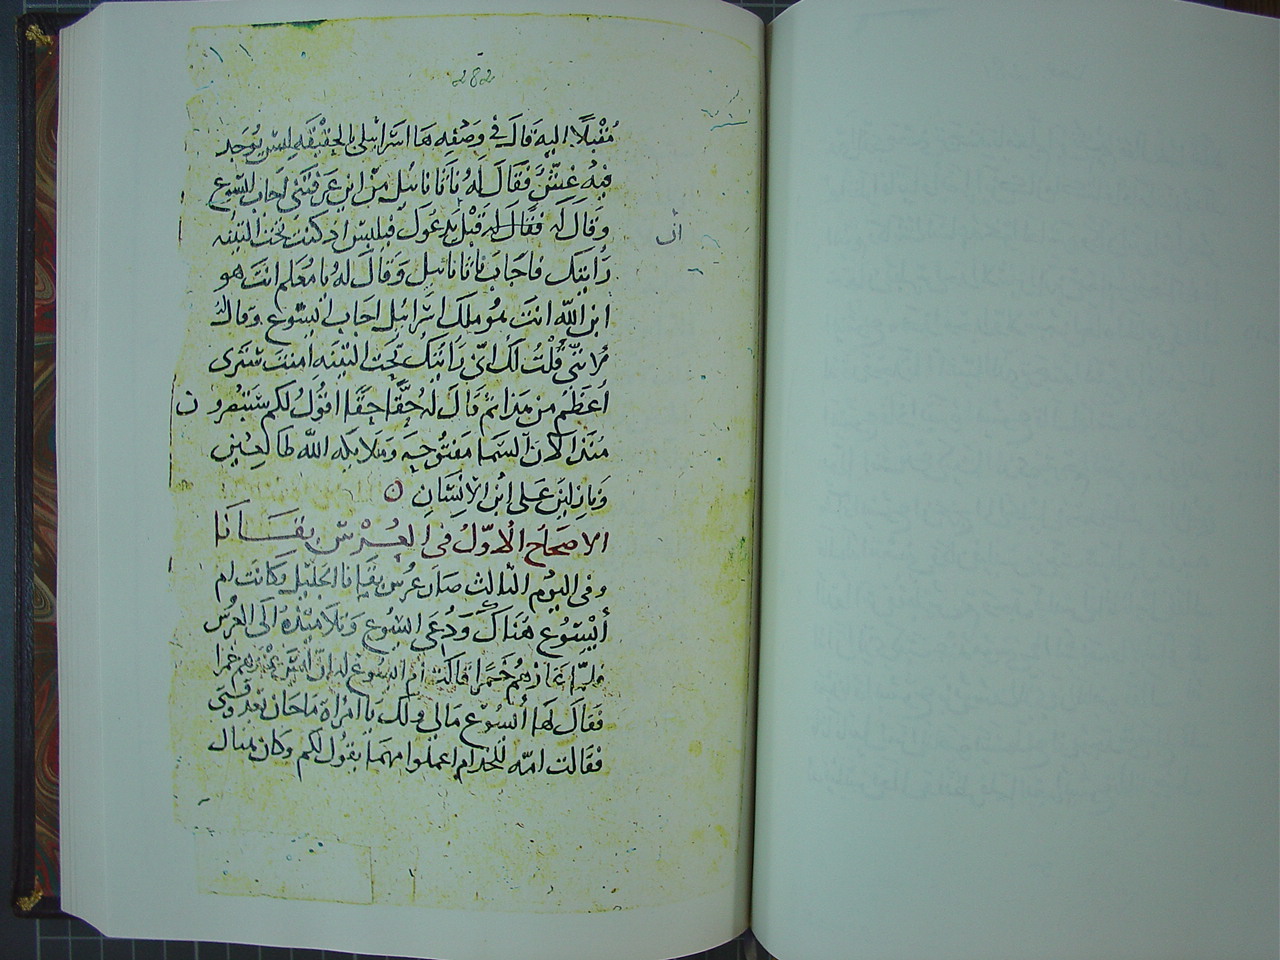 282
مُقْبلًا اليه قال في وصفه ها اسرائيلي بالحقيقه ليس يوجد
فيه غِشٌّ فقال له ناثانائيل من اين عرفتني اجاب ايسوع
وقال له فقال له قبل يدعوك فيلبس اذ كنت تحت التينه
ان
رايتك فاجاب ناثانائيل وقال له يا معلم انت هو
ابن الله انت هو ملك اسرائيل اجاب ايسوع وقال له
لانني قلت لك اني رايتك تحت التينه امنت سترى
اعظم من هذا ثم قال له حقًا حقًا اقول لكم ستبصرون
منذ الان السما مفتوحه وملايكه الله طالعين
ونازلين على ابن الانسان
الاصحاح الاوّل في العرس بقانا
وفي اليوم الثالث صار عرس بقانا الجليل وكانت ام
أيسوع هناك ودُعي ايسوع وتلاميذه الى العرس
خمرا قالت ام ايسوع له ان ليس عندهم خمرا
فقال لها أيسوع مالي ولك يا امراة ما حان بعد وقتي
فقالت امه للخدام اعملوا مهما يقول لكم وكان هناك